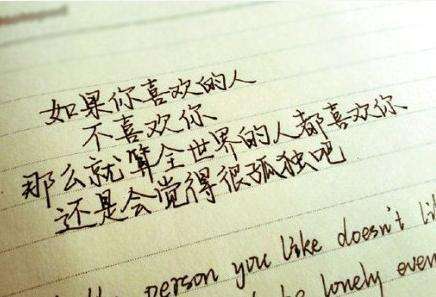 如果你喜欢的人
不喜欢你
那么就算全世界的人都喜欢你
还是会觉得很孤独吧
person you like doesn't li
be lonely even